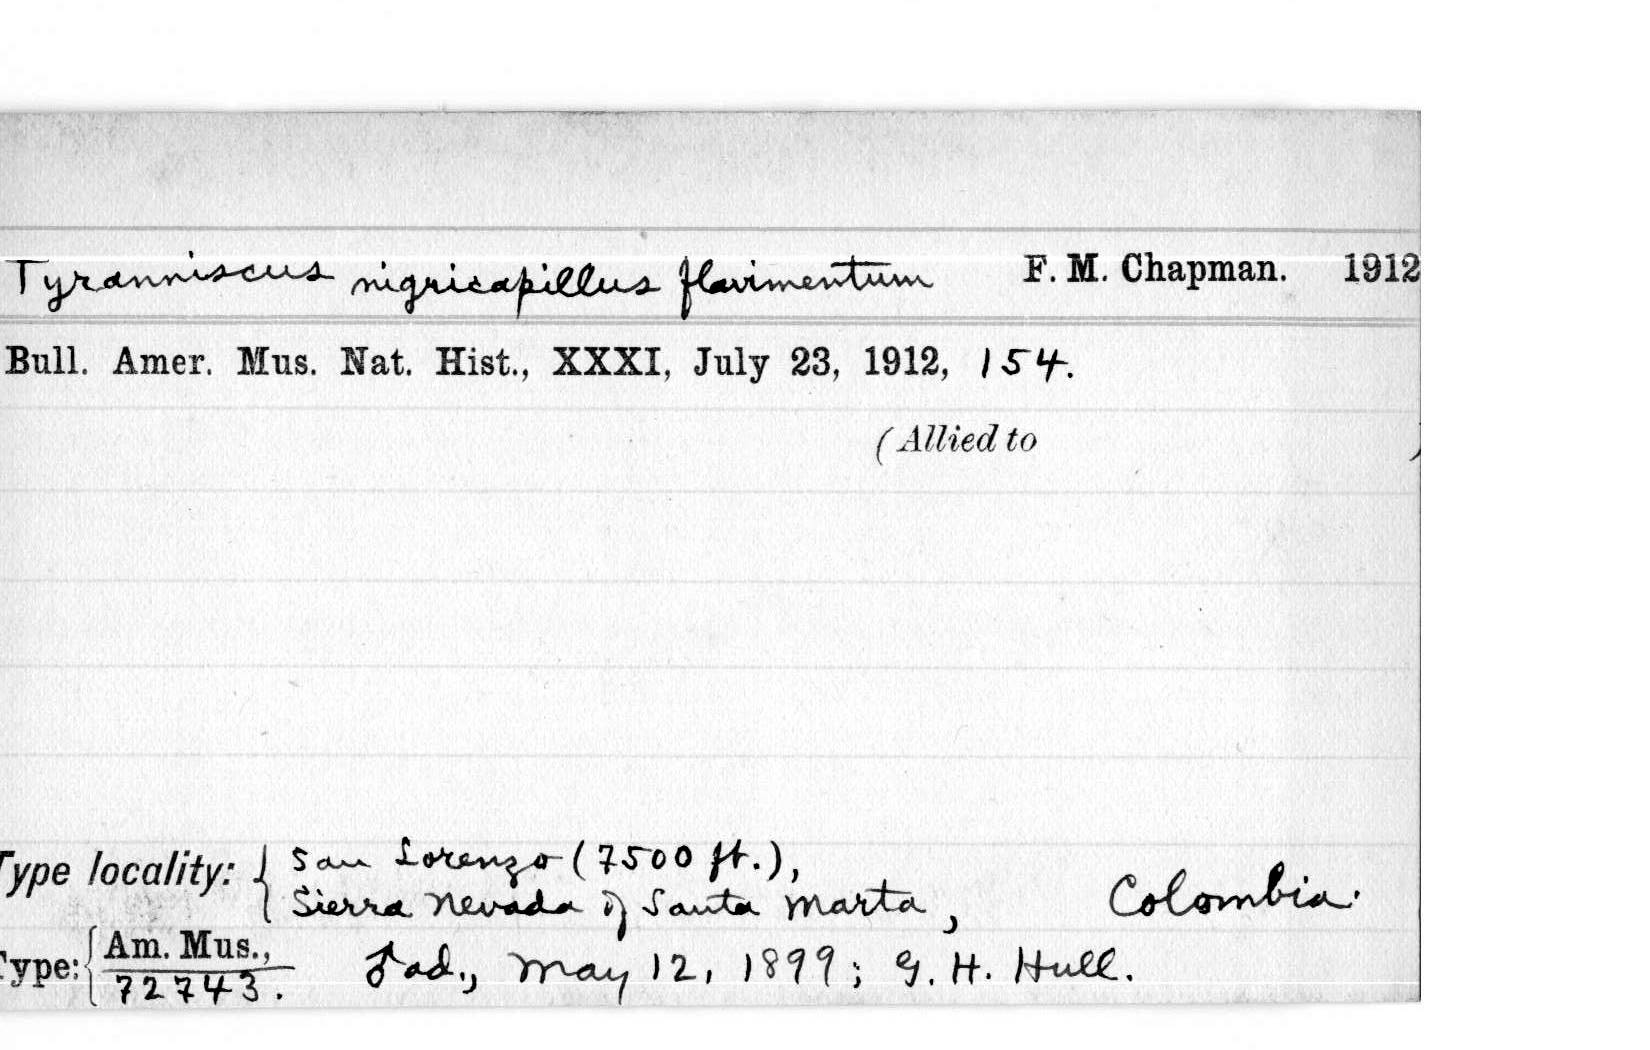 Tyranniscus nigricapillus flavimentum F. M. Chapman. 1912
Bull. Amer. Mus. Nat. Hist., XXXI, July 23, 1912, 154.
(Allied to )
Type locality: { San Lorenzo (7500 ft.),
Sierra Nevada of Santa Marta, Colombia.
Type: { Am. Mus.,
72743. ♂ ad., May 12, 1899; G. H. Hull.